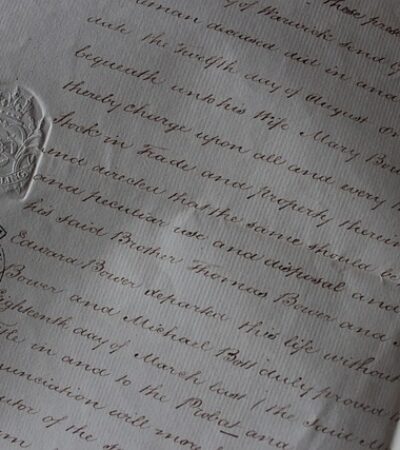 of Warwick send
deceased did in and
date the Twelfth day of August
bequeath unto his Wife Mary
thereby charge upon all and every
Stock in Trade and property therein
and directed that the same should be
and peculiar use and disposal and
his said Brother Thomas Bower and
Edward Bower departed this life without
Bower and Michael Bott duly proved
Eighteenth day of March last / the said
in and to the Probat and
will more
of the